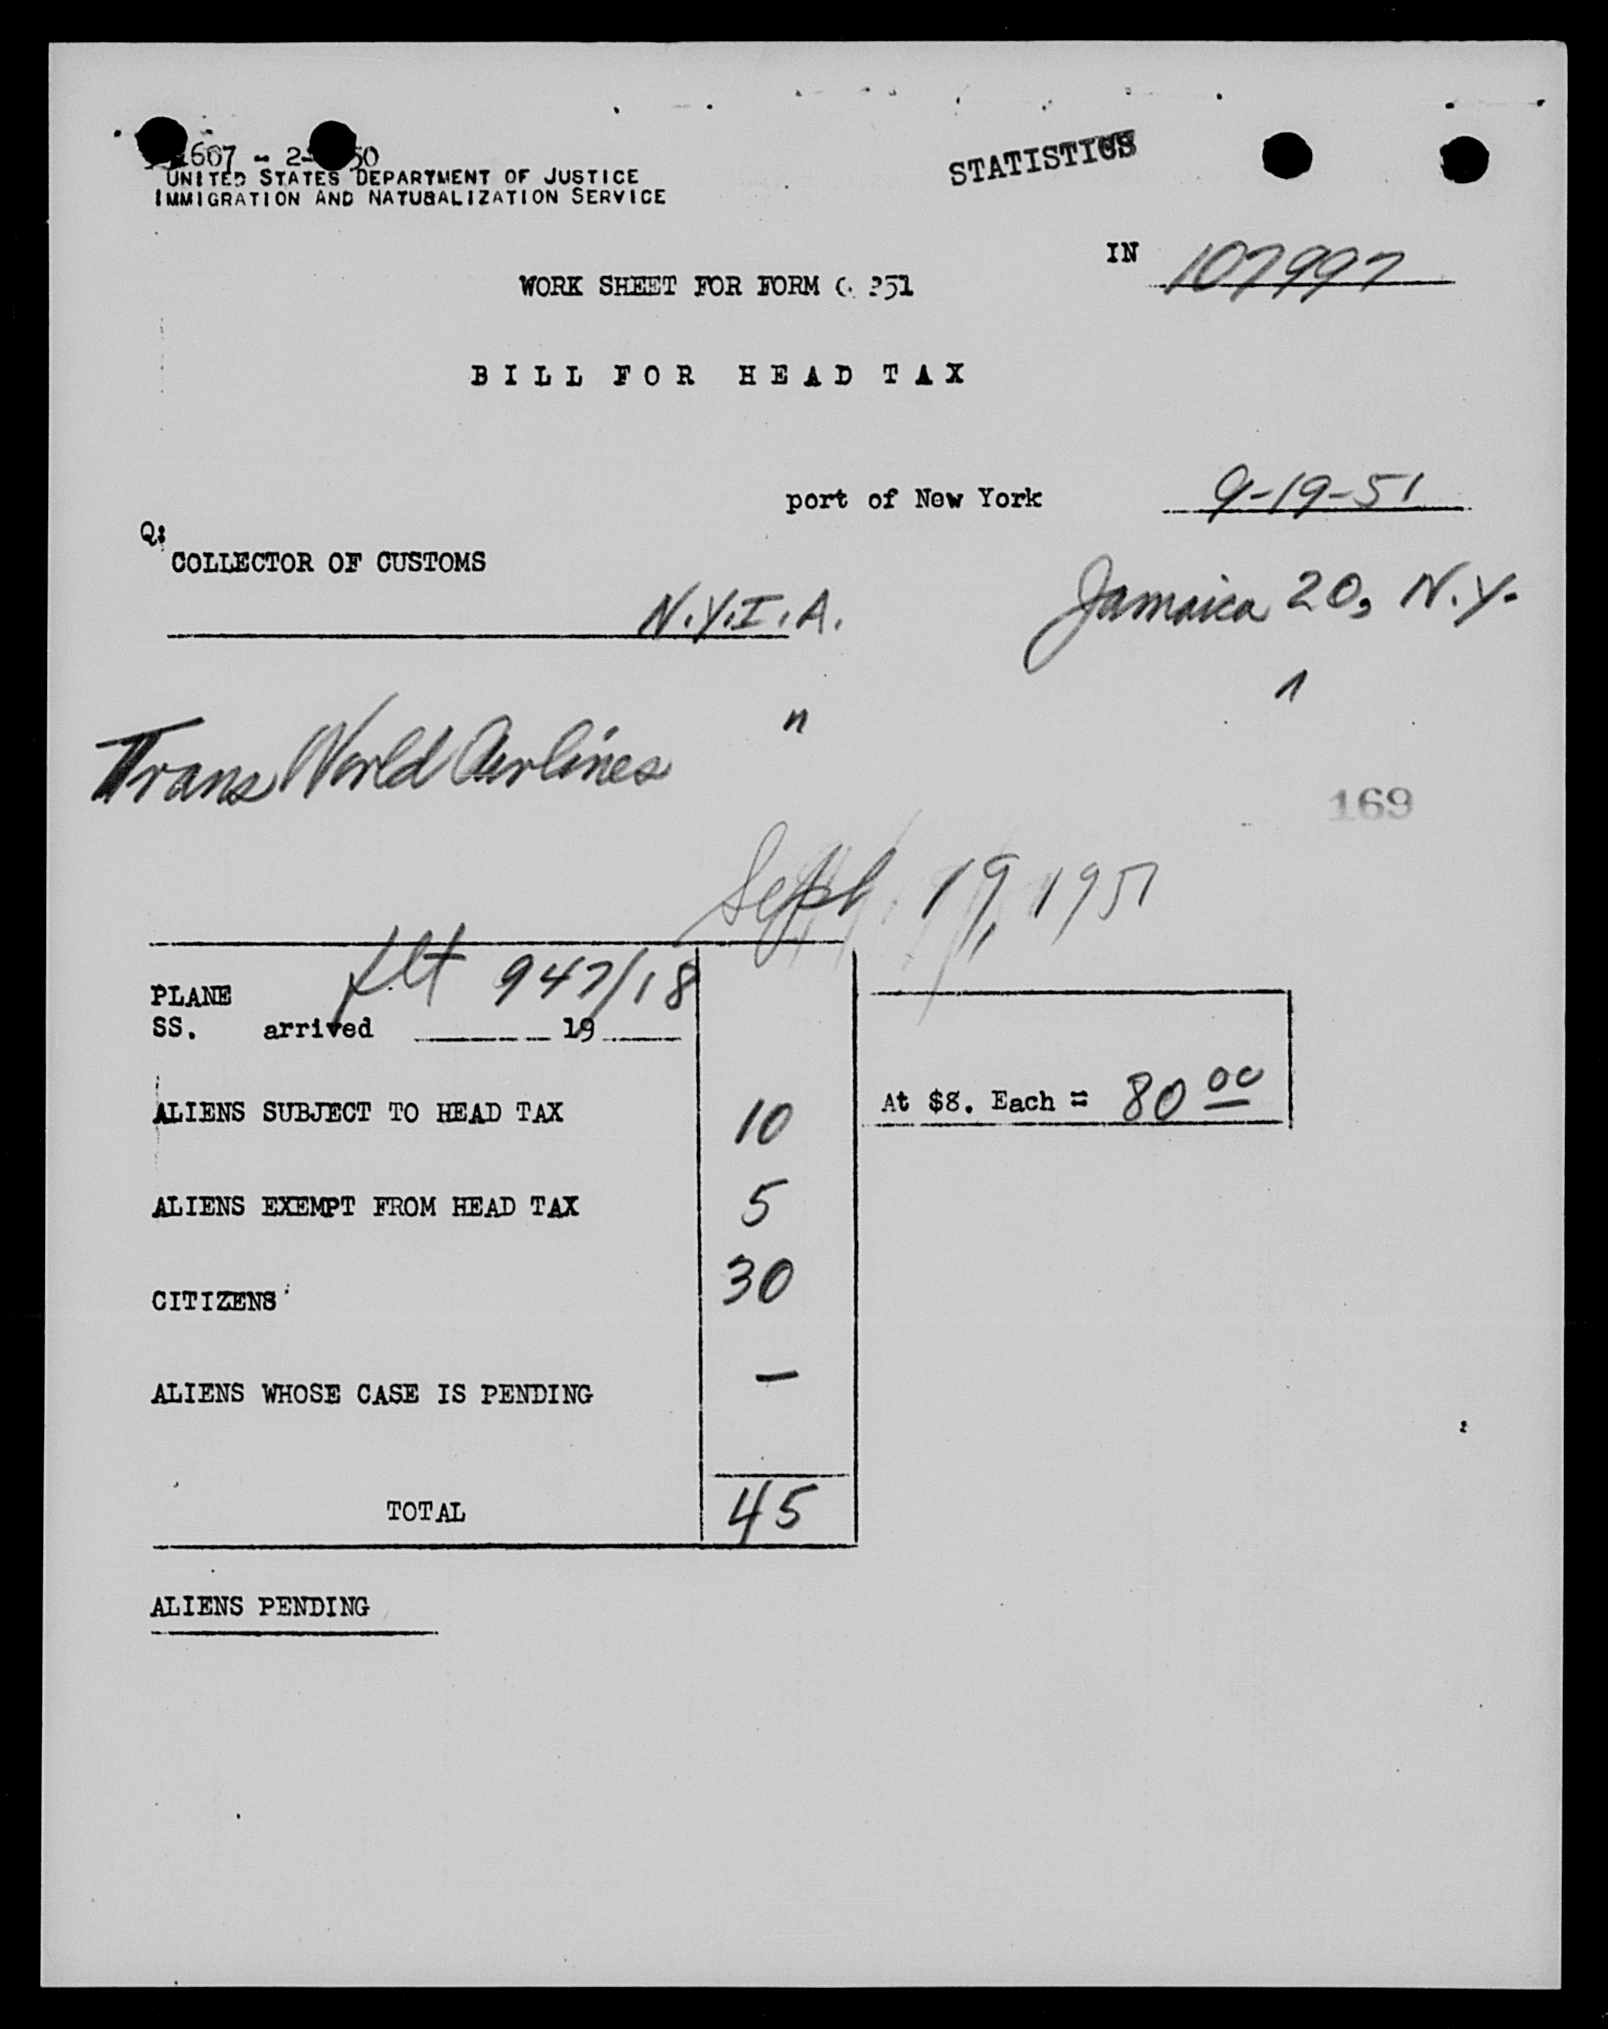 1607 - 2- 50
UNITED STATES DEPARTMENT OF JUSTICE
IMMIGRATION AND NATURALIZATION SERVICE
STATISTICS
IN 107997
WORK SHEET FOR FORM 351
BILL FOR HEAD TAX
port of New York 9-19-51
Q:
COLLECTOR OF CUSTOMS
N.Y.I.A. Jamaica 20, N.Y.
Trans World Airlines " "
169
Sept. 19, 1951
flt 947/18
PLANE
SS. arrived 19
ALIENS SUBJECT TO HEAD TAX 10 At $8. Each = 80 00
ALIENS EXEMPT FROM HEAD TAX 5
CITIZENS 30
ALIENS WHOSE CASE IS PENDING —
TOTAL 45
ALIENS PENDING